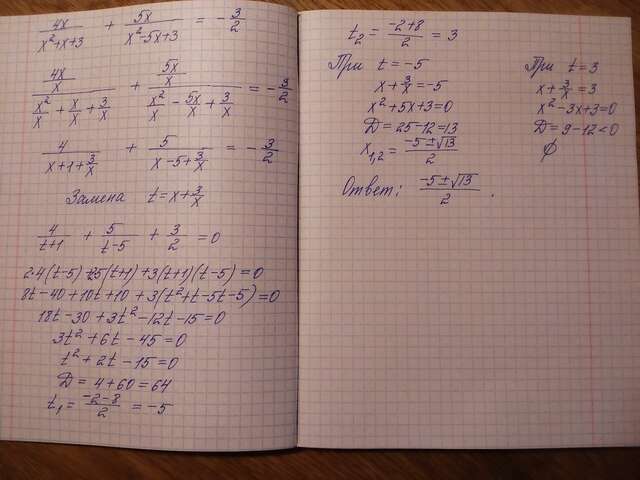 4x/(x²+x+3) + 5x/(x²-5x+3) = -3/2
(4x/x)/(x²/x + x/x + 3/x) + (5x/x)/(x²/x - 5x/x + 3/x) = -3/2
4/(x+1+3/x) + 5/(x-5+3/x) = -3/2
Замена t=x+3/x
4/(t+1) + 5/(t-5) + 3/2 = 0
2·4(t-5)+25(t+1)+3(t+1)(t-5)=0
8t-40+10t+10+3(t²+t-5t-5)=0
18t-30+3t²-12t-15=0
3t²+6t-45=0
t²+2t-15=0
D=4+60=64
t₁=(-2-8)/2=-5
t₂=(-2+8)/2=3
При t=-5
x+3/x=-5
x²+5x+3=0
D=25-12=13
x₁,₂=(-5±√13)/2
При t=3
x+3/x=3
x²-3x+3=0
D=9-12<0
∅
Ответ: (-5±√13)/2.